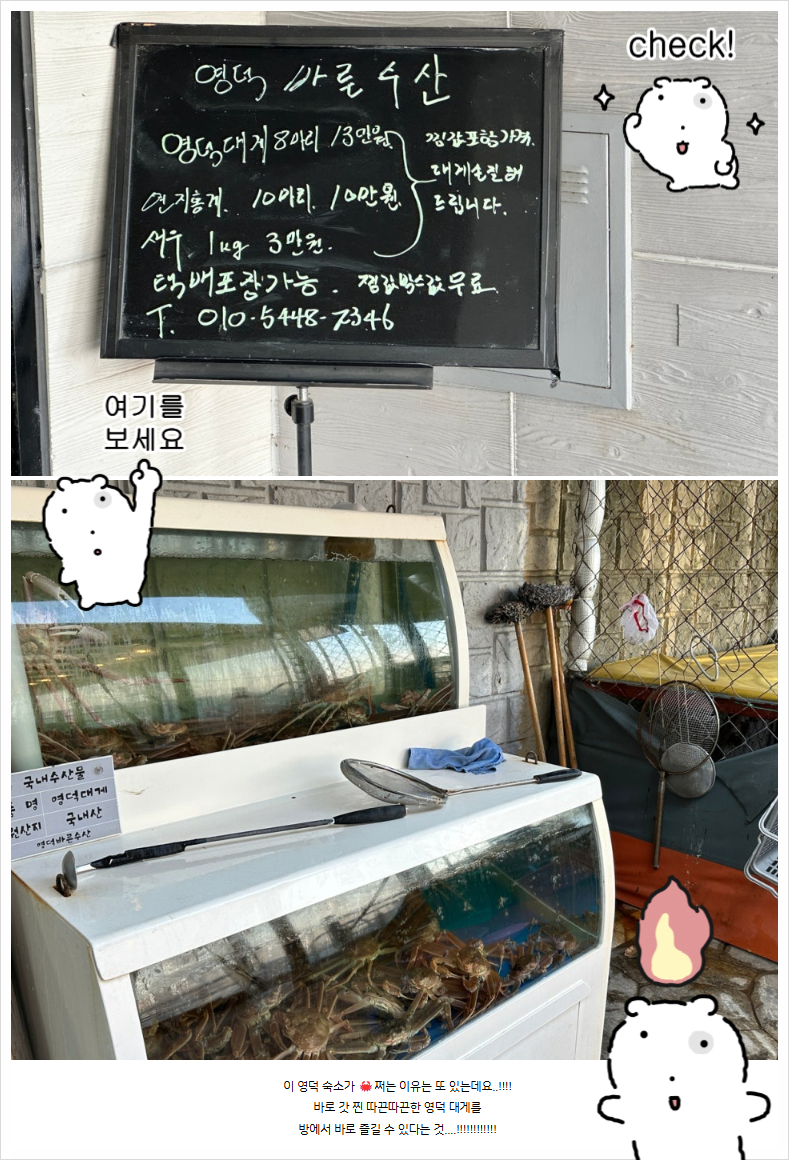 check!
영덕 바른수산
영덕대게 8마리 13만원
찜값포함가격.
대게손질해
드립니다.
연지홍게. 10마리. 10만원.
새우 1kg 3만원.
택배포장가능. 찜값박스값무료.
T. 010-5448-7346
여기를
보세요
국내수산물
명 영덕대게
원산지 국내산
영덕바른수산
이 영덕 숙소가 🦀쩌는 이유는 또 있는데요..!!!!
바로 갓 찐 따끈따끈한 영덕 대게를
방에서 바로 즐길 수 있다는 것....!!!!!!!!!!!!